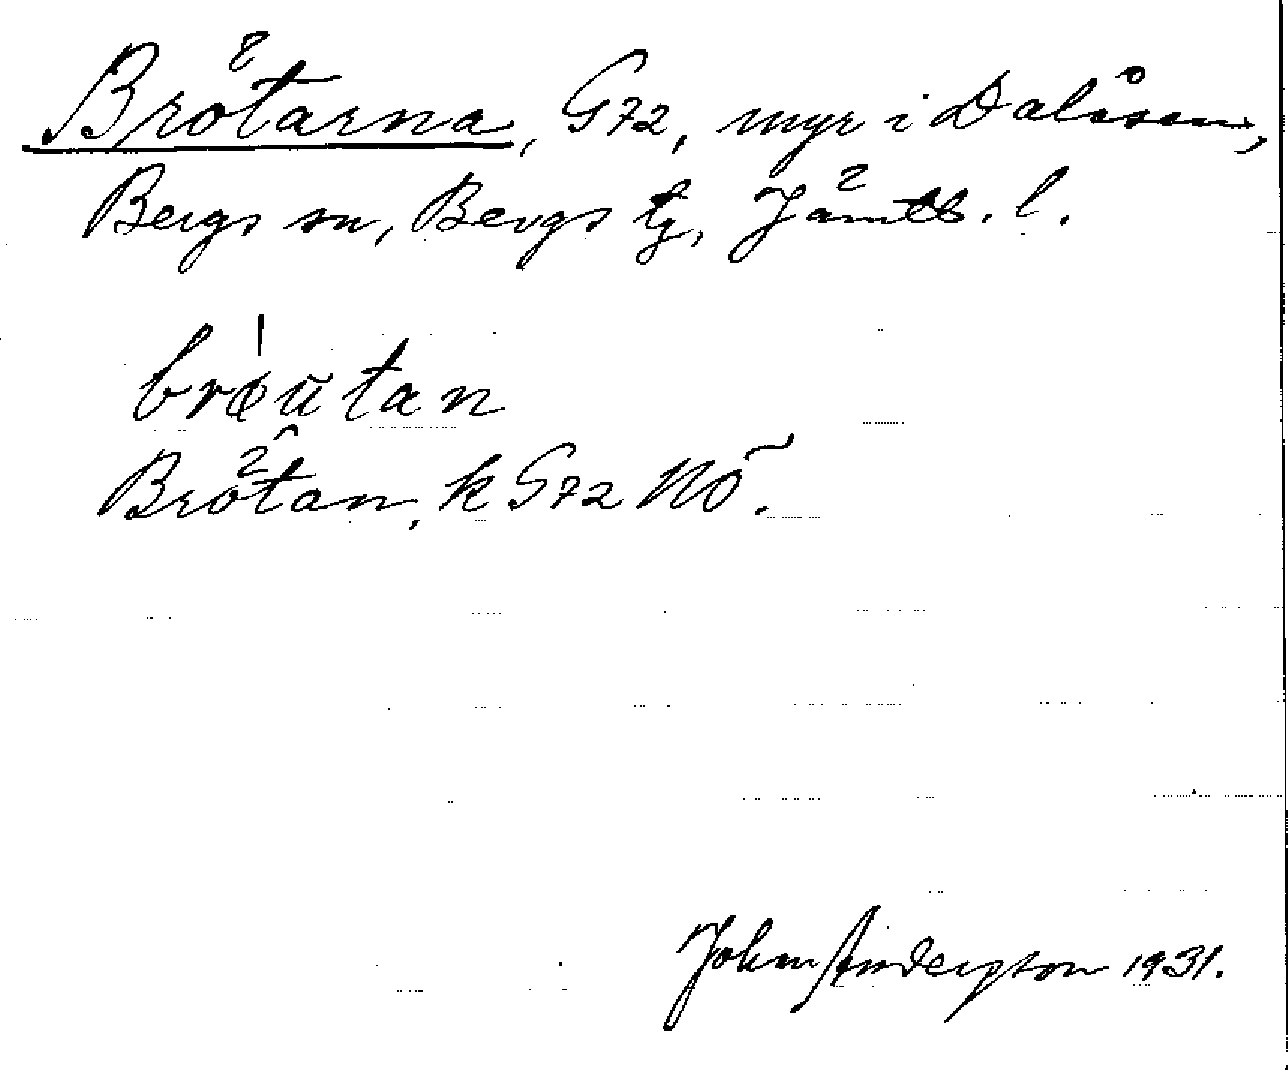 Brötarna, G72, myr i Dalåsen,
Bergs sn, Bergs tg, Jämtl. l.
brøutan
Brötan, k G72 NO.
John Andersson 1931.